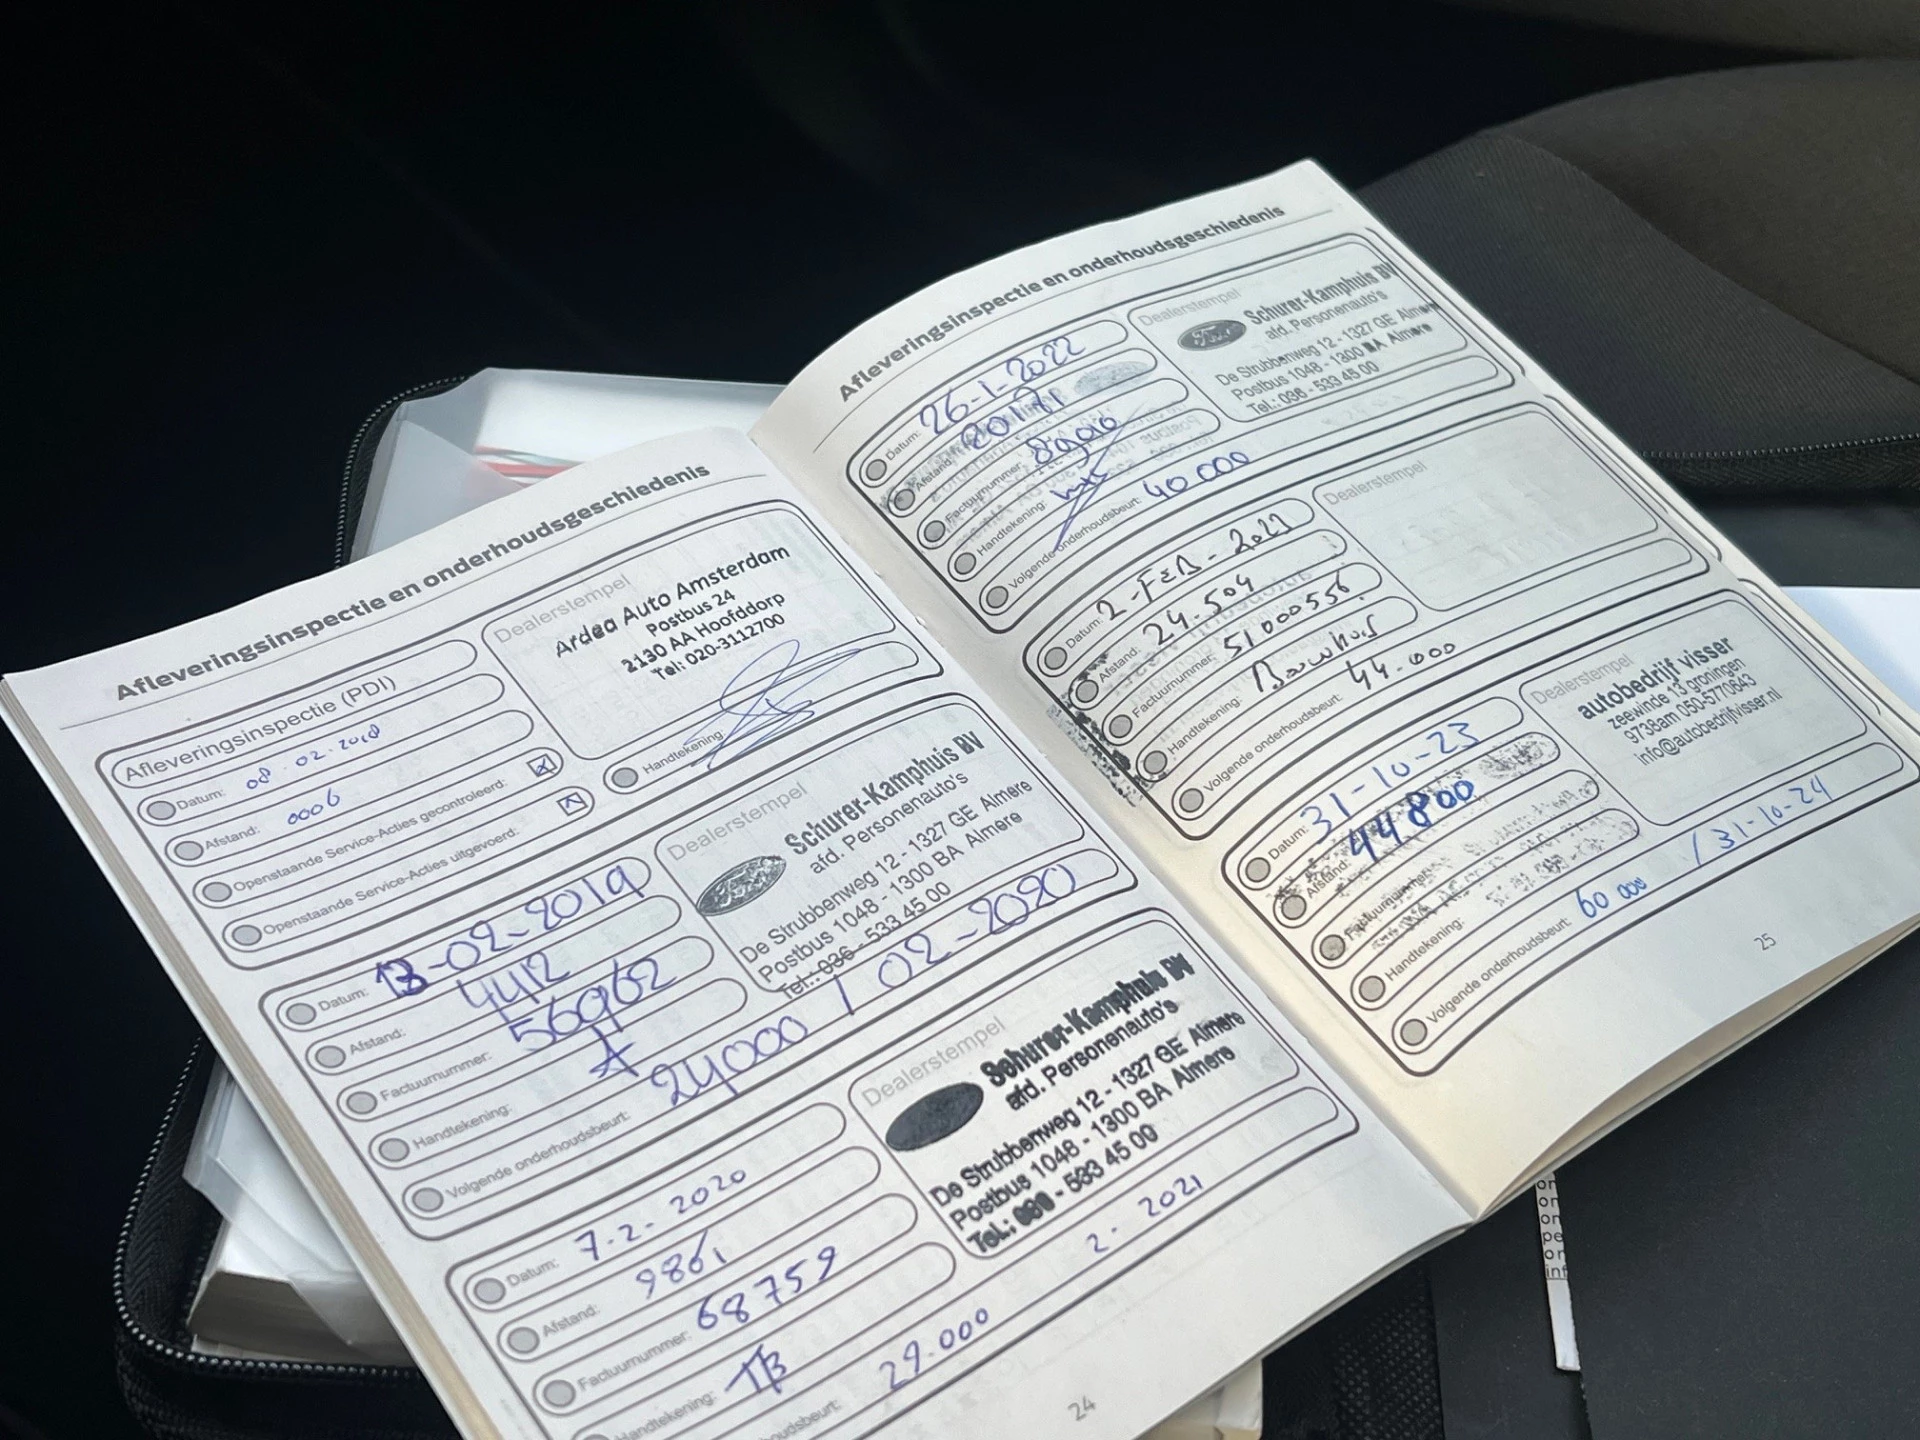 Afleveringsinspectie en onderhoudsgeschiedenis
Afleveringsinspectie (PDI)
Datum: 08.02.2018
Afstand: 0006
Openstaande Service-Acties gecontroleerd:
Openstaande Service-Acties uitgevoerd:
Dealerstempel
Ardea Auto Amsterdam
Postbus 24
2130 AA Hoofddorp
Tel: 020-3112700
Handtekening
Datum: 13-02-2019
Afstand: 4412
Factuurnummer: 56962
Handtekening:
Volgende onderhoudsbeurt: 24000 / 02-2020
Dealerstempel
Ford
Schurer-Kamphuis BV
afd. Personenauto's
De Strubbenweg 12 - 1327 GE Almere
Postbus 1048 - 1300 BA Almere
Tel.: 036 - 533 45 00
Datum: 7.2.2020
Afstand: 9861
Factuurnummer: 68759
Handtekening: TB
onderhoudsbeurt: 29.000 2. 2021
Dealerstempel
Schurer-Kamphuis BV
afd. Personenauto's
De Strubbenweg 12 - 1327 GE Almere
Postbus 1048 - 1300 BA Almere
Tel.: 036 - 533 45 00
24
Afleveringsinspectie en onderhoudsgeschiedenis
Datum: 26-1-2022
Afstand:
Factuurnummer:
Handtekening:
Volgende onderhoudsbeurt: 40000
Dealerstempel
Ford
Schurer-Kamphuis BV
afd. Personenauto's
De Strubbenweg 12 - 1327 GE Almere
Postbus 1048 - 1300 BA Almere
Tel.: 036 - 533 45 00
Datum: 2-FEB-
Afstand: 24.504
Factuurnummer: 51000556.
Handtekening: Bouwhuis
Volgende onderhoudsbeurt: 44.000
Dealerstempel
Datum: 31-10-23
Afstand: 44800
Factuurnummer:
Handtekening:
Volgende onderhoudsbeurt: 60 000 / 31-10-24
Dealerstempel
autobedrijf visser
zeewinde 13 groningen
9738am 050-5770643
info@autobedrijfvisser.nl
25
on
on
on
pe
on
inf